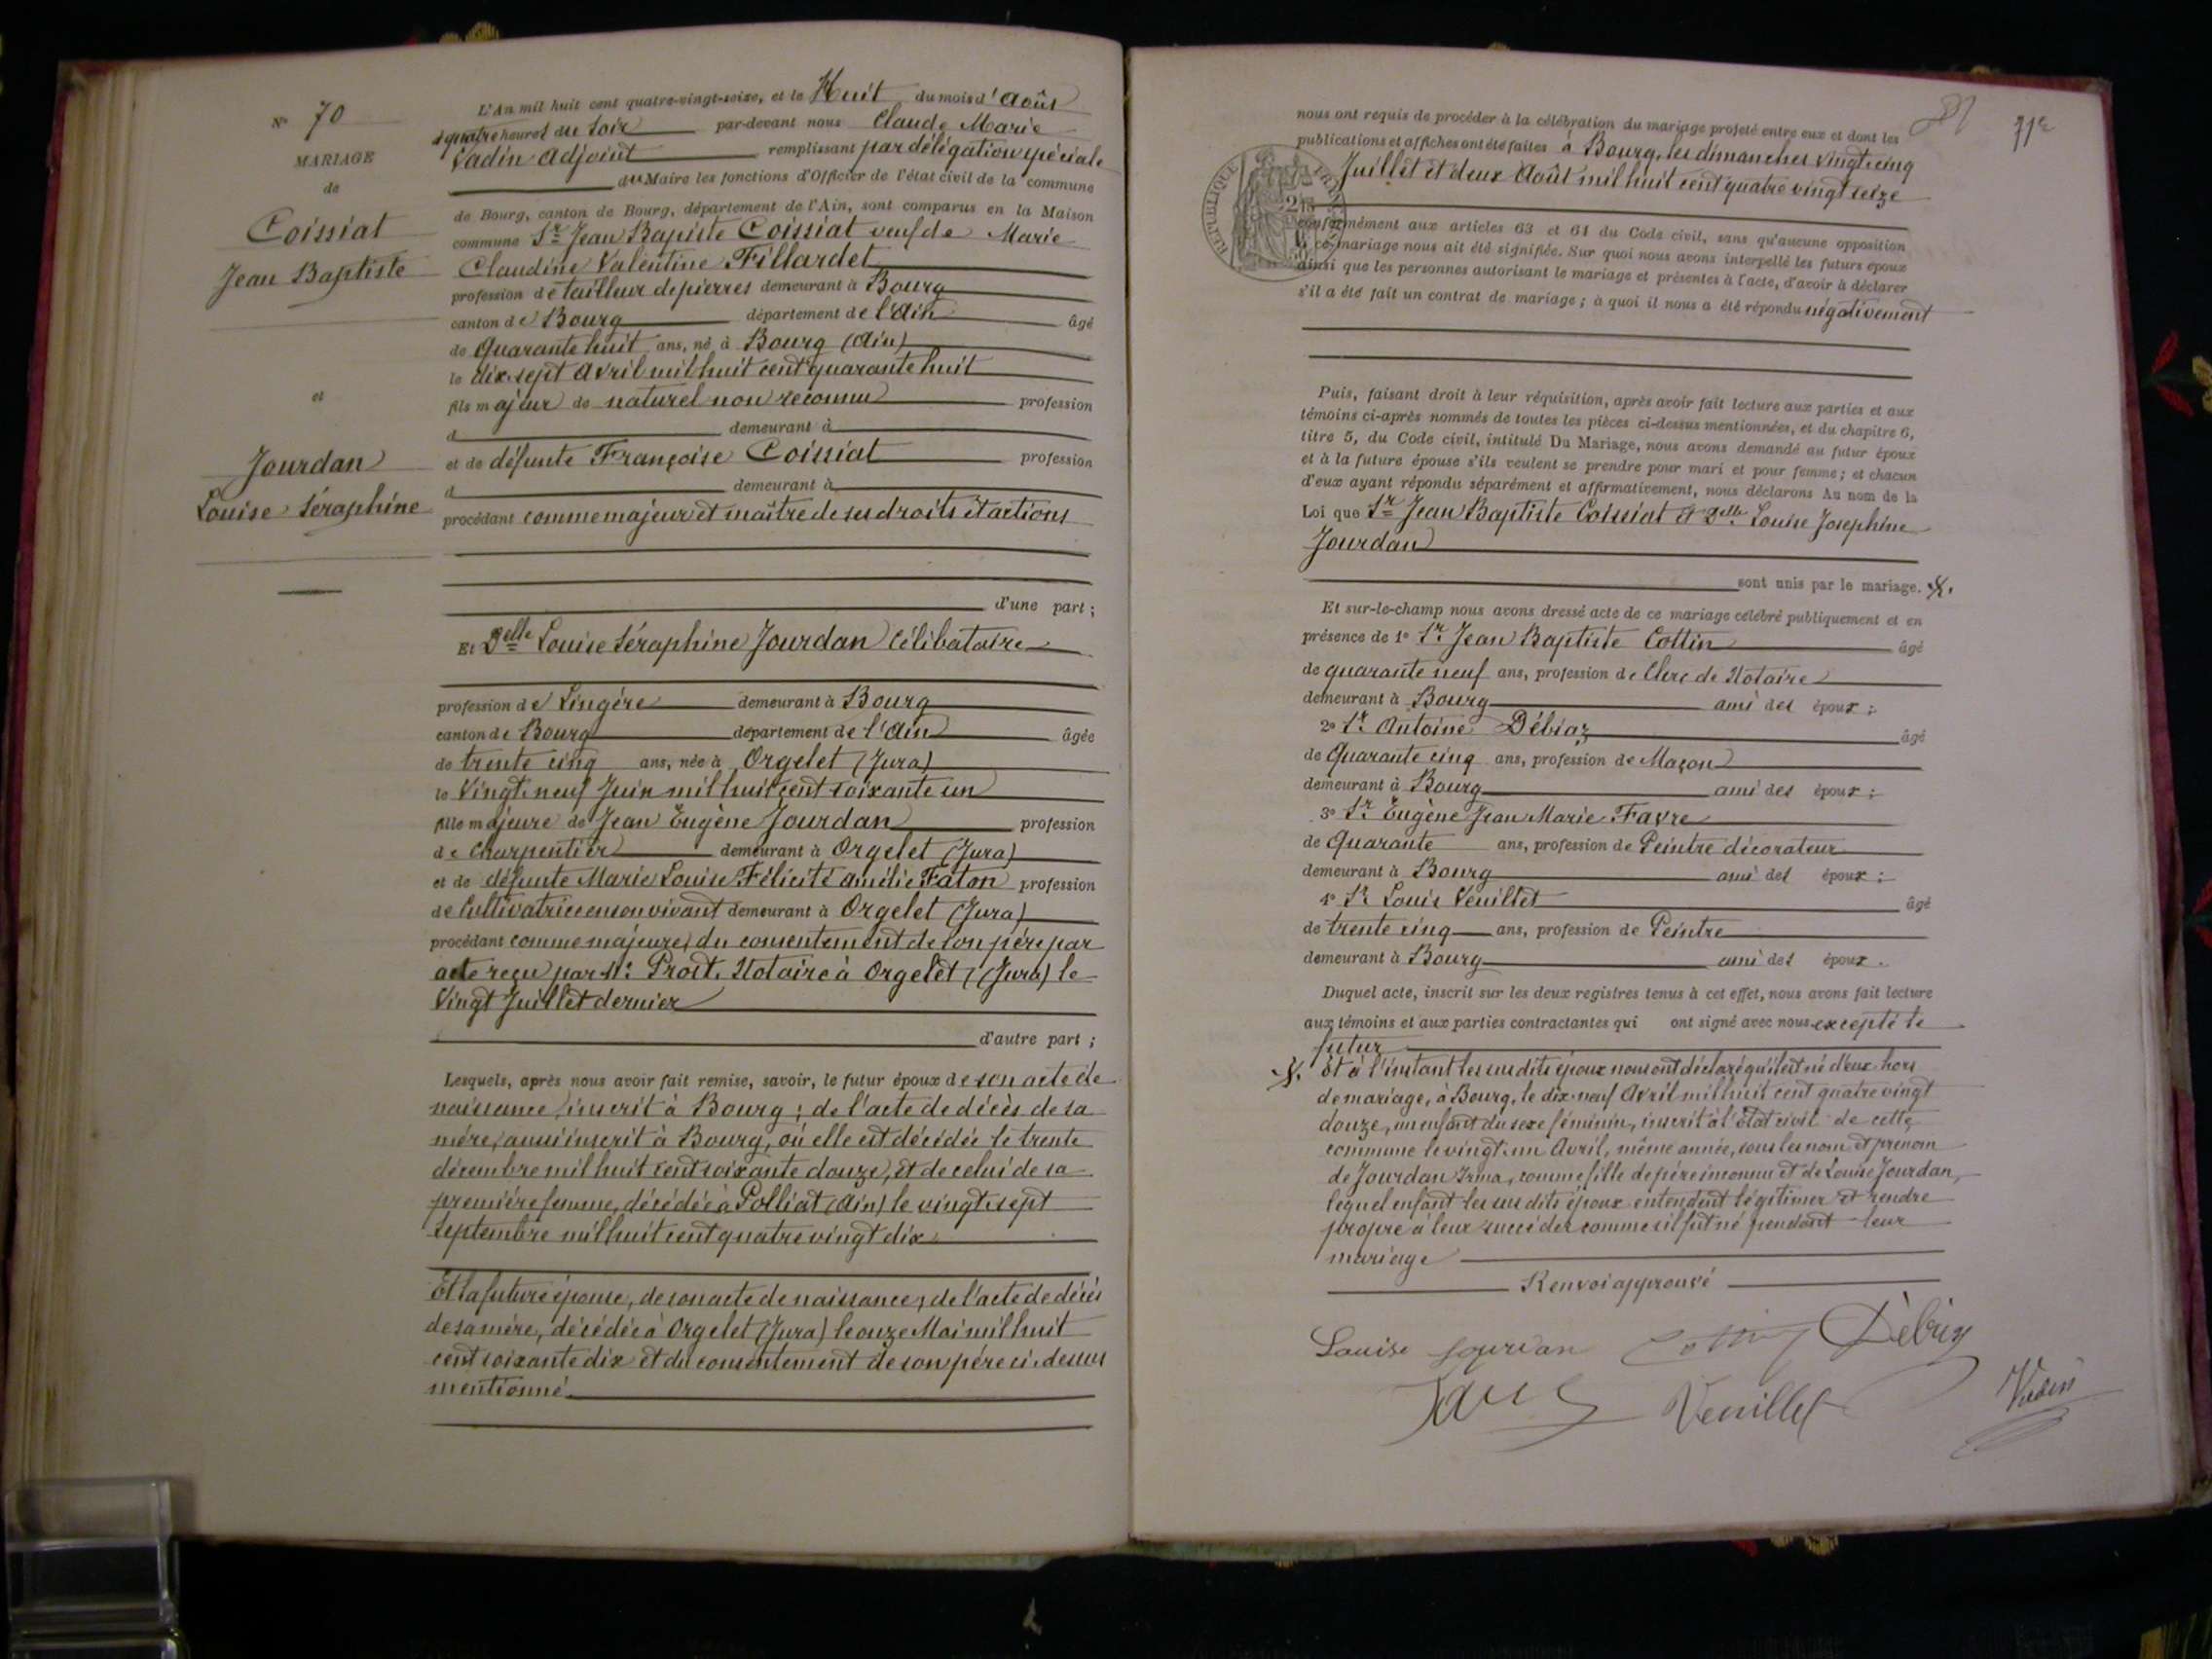 N° 70
MARIAGE
de
Coissiat
Jean Baptiste
et
Jourdan
Louise Séraphine
L'An mil huit cent quatre-vingt-seize, et le Huit du mois d'Août
à quatre heures du soir par-devant nous Claude Marie
Vadin Adjoint remplissant par délégation spéciale
du Maire les fonctions d'Officier de l'état civil de la commune
de Bourg, canton de Bourg, département de l'Ain, sont comparus en la Maison
commune Sr Jean Baptiste Coissiat veuf de Marie
Claudine Valentine Fillardet
profession de tailleur de pierres demeurant à Bourg
canton de Bourg département de l'Ain âgé
de Quarante huit ans, né à Bourg (Ain)
le dix-sept Avril mil huit cent quarante huit
fils majeur de naturel non reconnu profession
d demeurant à
et de défunte Françoise Coissiat profession
d demeurant à
procédant comme majeur et maître de ses droits et actions
d'une part ;
Et Delle Louise Séraphine Jourdan Célibataire
profession de Lingère demeurant à Bourg
canton de Bourg département de l'Ain âgée
de trente cinq ans, née à Orgelet (Jura)
le Vingt-neuf Juin mil huit cent soixante un
fille majeure de Jean Eugène Jourdan profession
de Charpentier demeurant à Orgelet (Jura)
et de défunte Marie Louise Félicité Amélie Faton profession
de Cultivatrice en son vivant demeurant à Orgelet (Jura)
procédant comme majeure, du consentement de son père par
acte reçu par Me Prost, Notaire à Orgelet, (Jura) le
Vingt Juillet dernier
d'autre part ;
Lesquels, après nous avoir fait remise, savoir, le futur époux de son acte de
naissance, inscrit à Bourg ; de l'acte de décès de sa
mère, aussi inscrit à Bourg, où elle est décédée le trente
décembre mil huit cent soixante douze, et de celui de sa
première femme, décédée à Polliat (Ain) le vingt-sept
Septembre mil huit cent quatre vingt dix
Et la future épouse, de son acte de naissance, de l'acte de décès
de sa mère, décédée à Orgelet (Jura) le onze Mai mil huit
cent soixante dix et du consentement de son père ci-dessus
mentionné
71e
nous ont requis de procéder à la célébration du mariage projeté entre eux et dont les
publications et affiches ont été faites à Bourg, les dimanches vingt-cinq
Juillet et deux Août mil huit cent quatre vingt seize
RÉPUBLIQUE
conformément aux articles 63 et 64 du Code civil, sans qu'aucune opposition
à ce mariage nous ait été signifiée. Sur quoi nous avons interpellé les futurs époux
ainsi que les personnes autorisant le mariage et présentes à l'acte, d'avoir à déclarer
s'il a été fait un contrat de mariage ; à quoi il nous a été répondu négativement
Puis, faisant droit à leur réquisition, après avoir fait lecture aux parties et aux
témoins ci-après nommés de toutes les pièces ci-dessus mentionnées, et du chapitre 6,
titre 5, du Code civil, intitulé Du Mariage, nous avons demandé au futur époux
et à la future épouse s'ils veulent se prendre pour mari et pour femme ; et chacun
d'eux ayant répondu séparément et affirmativement, nous déclarons Au nom de la
Loi que Sr Jean Baptiste Coissiat et Delle Louise Josephine
Jourdan
sont unis par le mariage.
Et sur-le-champ nous avons dressé acte de ce mariage célébré publiquement et en
présence de 1° Sr Jean Baptiste Cottin âgé
de quarante neuf ans, profession de Clerc de Notaire
demeurant à Bourg ami des époux ;
2° Sr Antoine Débiaz âgé
de Quarante cinq ans, profession de Maçon
demeurant à Bourg ami des époux ;
3° Sr Eugène Jean Marie Favre
de Quarante ans, profession de Peintre décorateur
demeurant à Bourg ami des époux ;
4° Sr Louis Veuillet âgé
de trente cinq ans, profession de Peintre
demeurant à Bourg ami des époux.
Duquel acte, inscrit sur les deux registres tenus à cet effet, nous avons fait lecture
aux témoins et aux parties contractantes qui ont signé avec nous excepté le
futur
Et à l'instant les susdits époux nous ont déclaré qu'il est né d'eux hors
de mariage, à Bourg, le dix-neuf Avril mil huit cent quatre vingt
douze, un enfant du sexe féminin, inscrit à l'état civil de cette
commune le vingt-un Avril, même année, sous les nom et prénom
de Jourdan Irma, comme fille de père inconnu et de Louise Jourdan,
lequel enfant les susdits époux entendent légitimer et rendre
propre à leur succéder comme s'il fut né pendant leur
mariage
Renvoi approuvé
Louise Jourdan Cottin Débiaz
Favre Veuillet Vadin